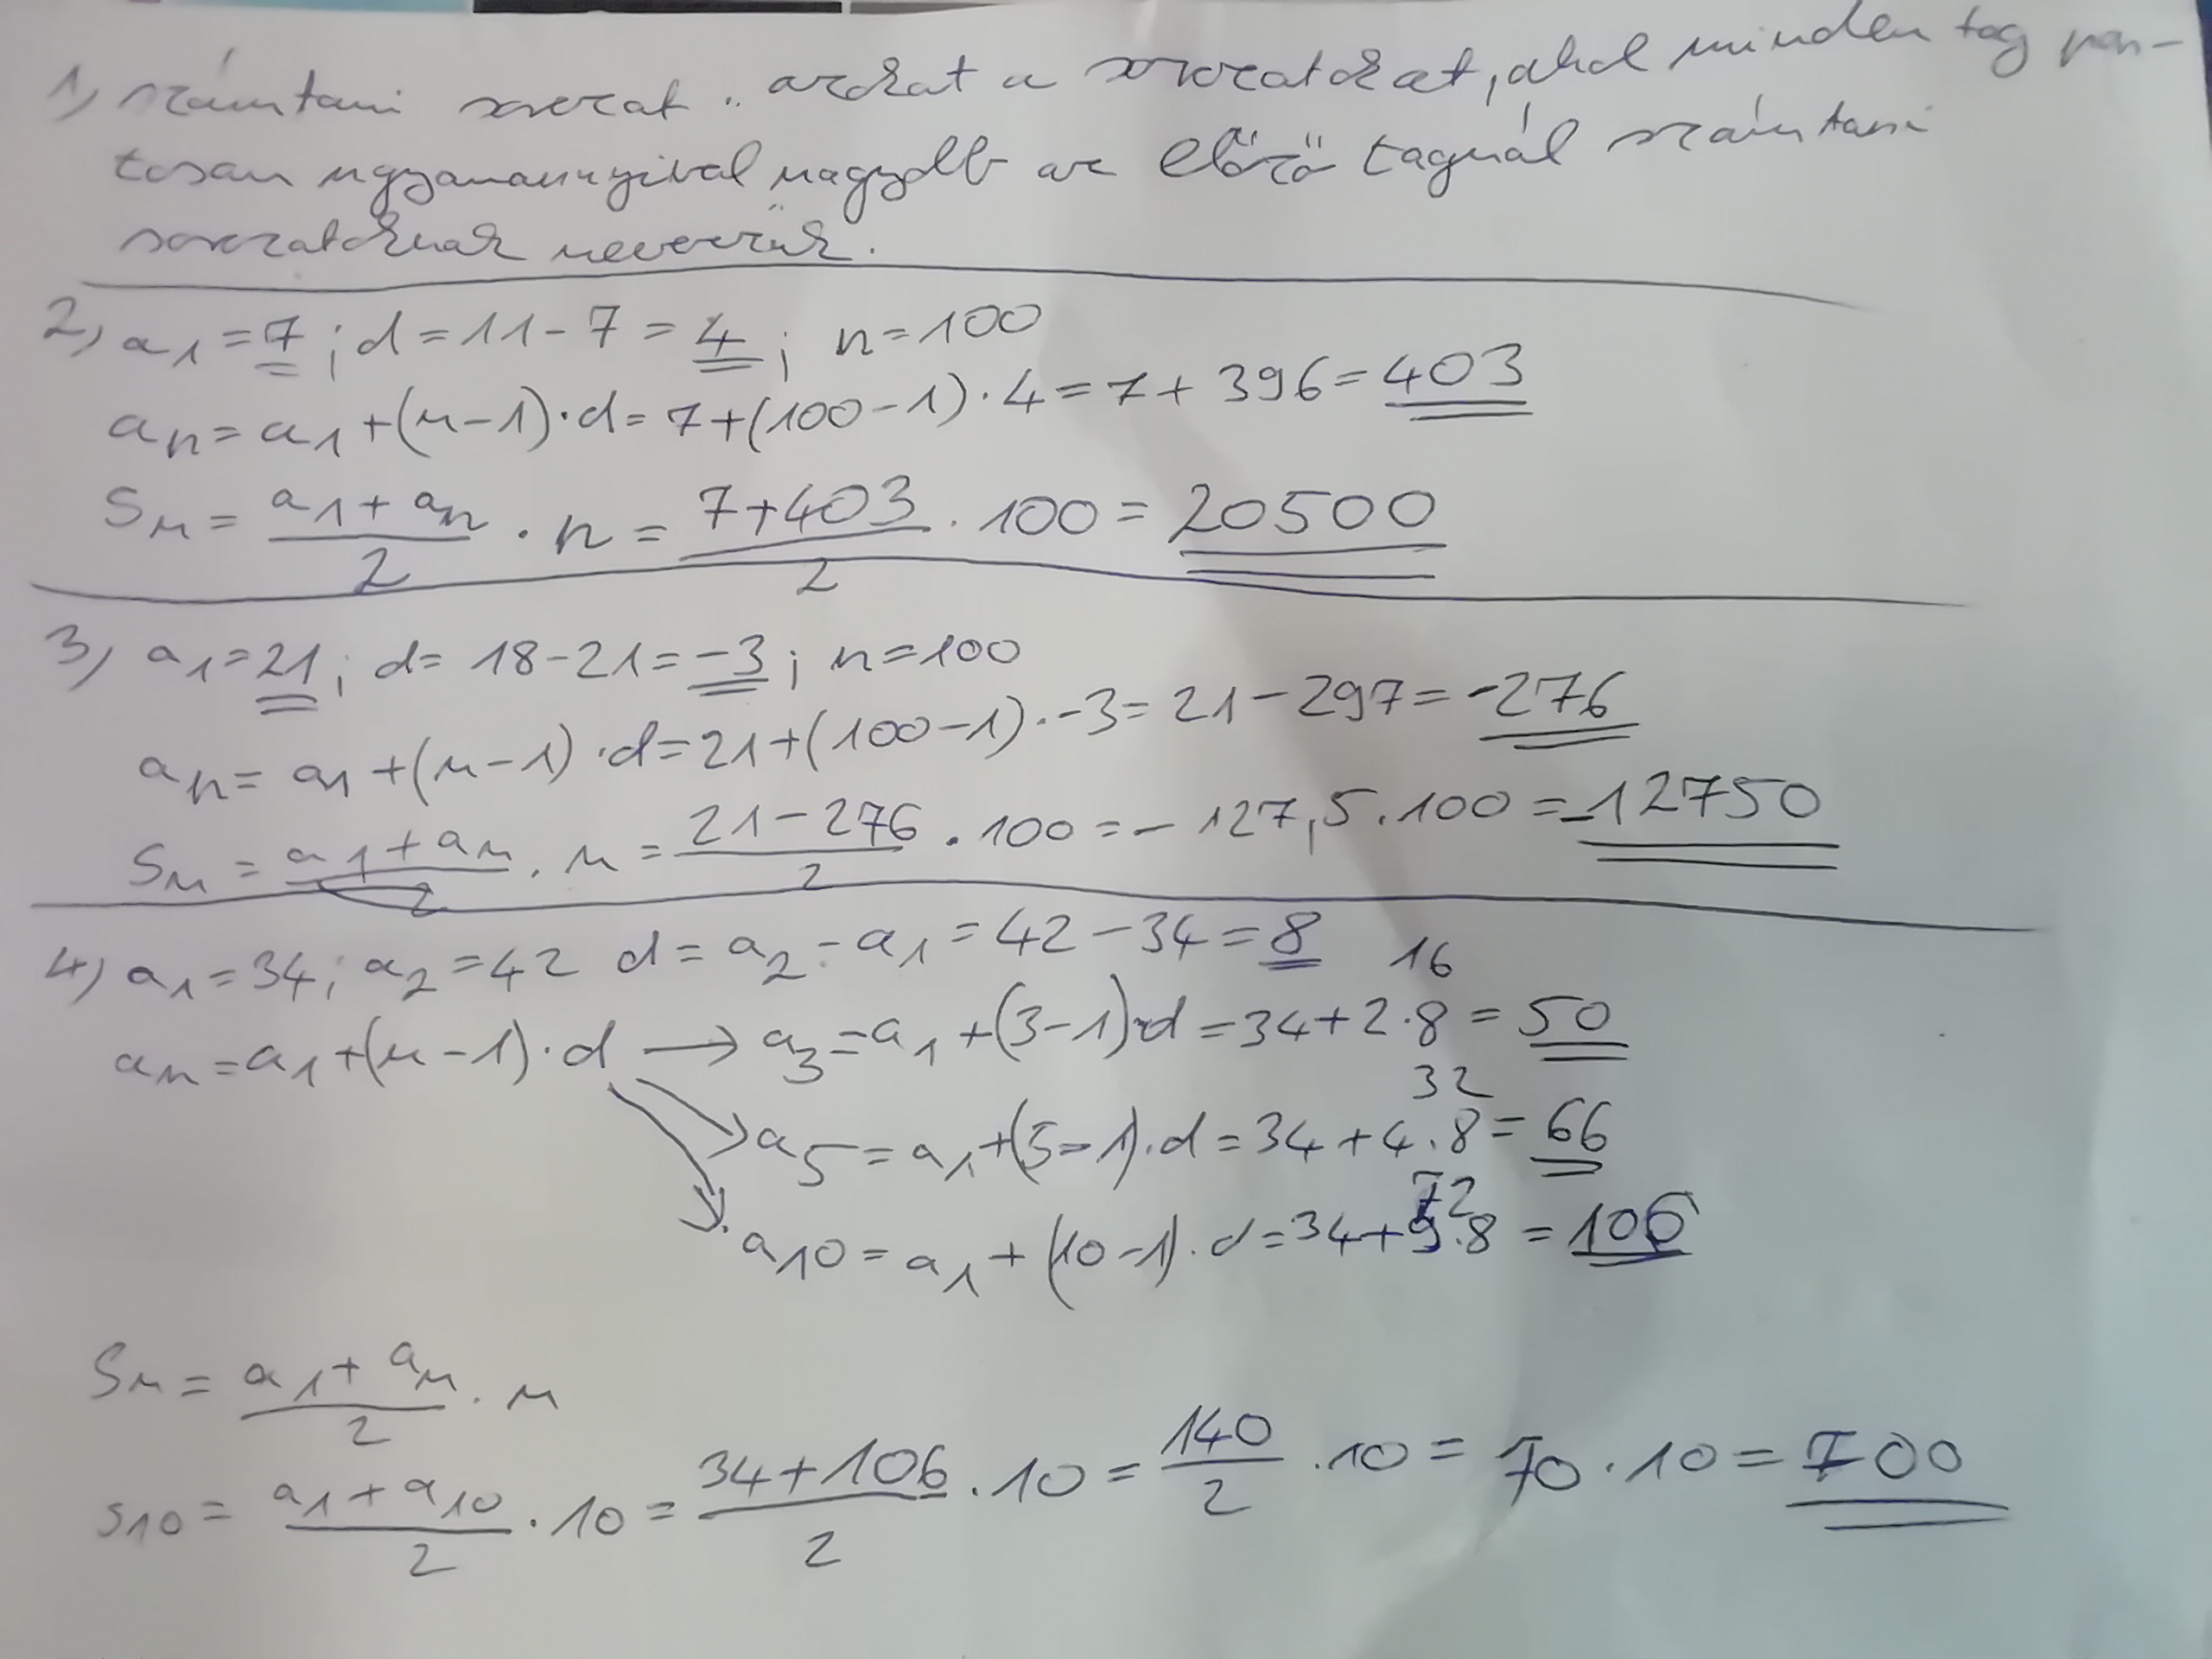 1, számtani sorozat: azokat a sorozatokat, ahol minden tag pon-
tosan ugyanannyival nagyobb az előző tagnál számtani
sorozatoknak nevezzük.
2, a₁ = 7 ; d = 11 - 7 = 4 ; n = 100
aₙ = a₁ + (n-1)·d = 7 + (100-1)·4 = 7 + 396 = 403
Sₙ = (a₁ + aₙ)/2 · n = (7+403)/2 · 100 = 20500
3, a₁ = 21 ; d = 18 - 21 = -3 ; n = 100
aₙ = a₁ + (n-1)·d = 21 + (100-1)·-3 = 21 - 297 = -276
Sₙ = (a₁ + aₙ)/2 · n = (21-276)/2 · 100 = -127,5·100 = -12750
4) a₁ = 34 ; a₂ = 42 d = a₂ - a₁ = 42 - 34 = 8
16
aₙ = a₁ + (n-1)·d → a₃ = a₁ + (3-1)·d = 34 + 2·8 = 50
32
a₅ = a₁ + (5-1)·d = 34 + 4·8 = 66
72
a₁₀ = a₁ + (10-1)·d = 34 + 9·8 = 106
Sₙ = (a₁ + aₙ)/2 · n
S₁₀ = (a₁ + a₁₀)/2 · 10 = (34+106)/2 · 10 = 140/2 · 10 = 70·10 = 700